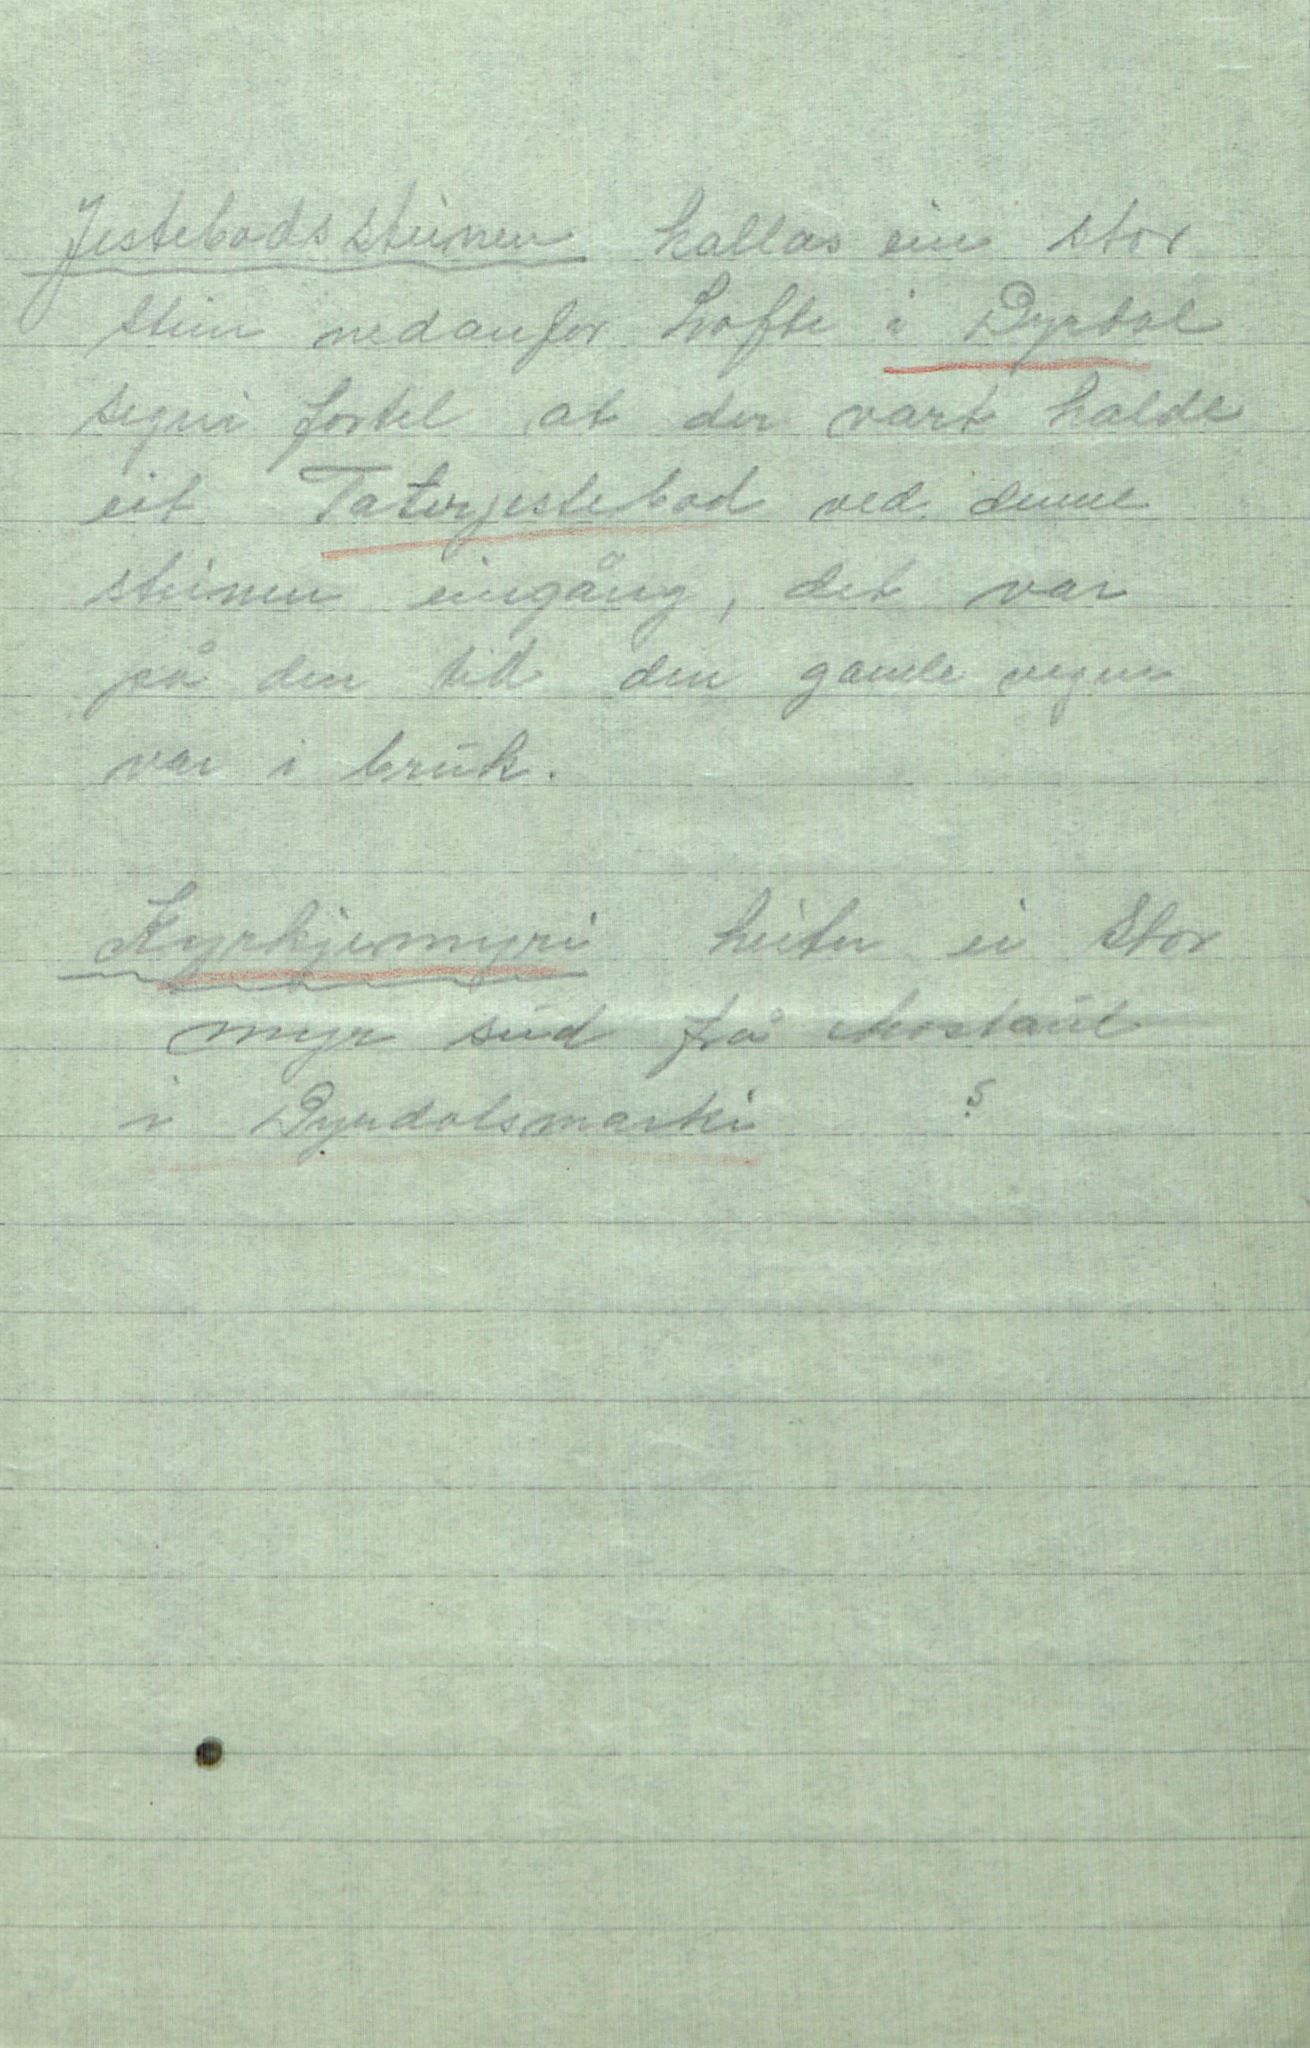 Jestebodssteinen kallas ein stor
stein nedanfor Lofte i Dyrdal
segni fortel at der vart halde
eit Taterjestebod ved denne
steinen eingång, det var
på den tid den gamle vegen
var i bruk.
Kyrkjemyri heiter ei stor
myr sud frå
i Dyrdalsmarki